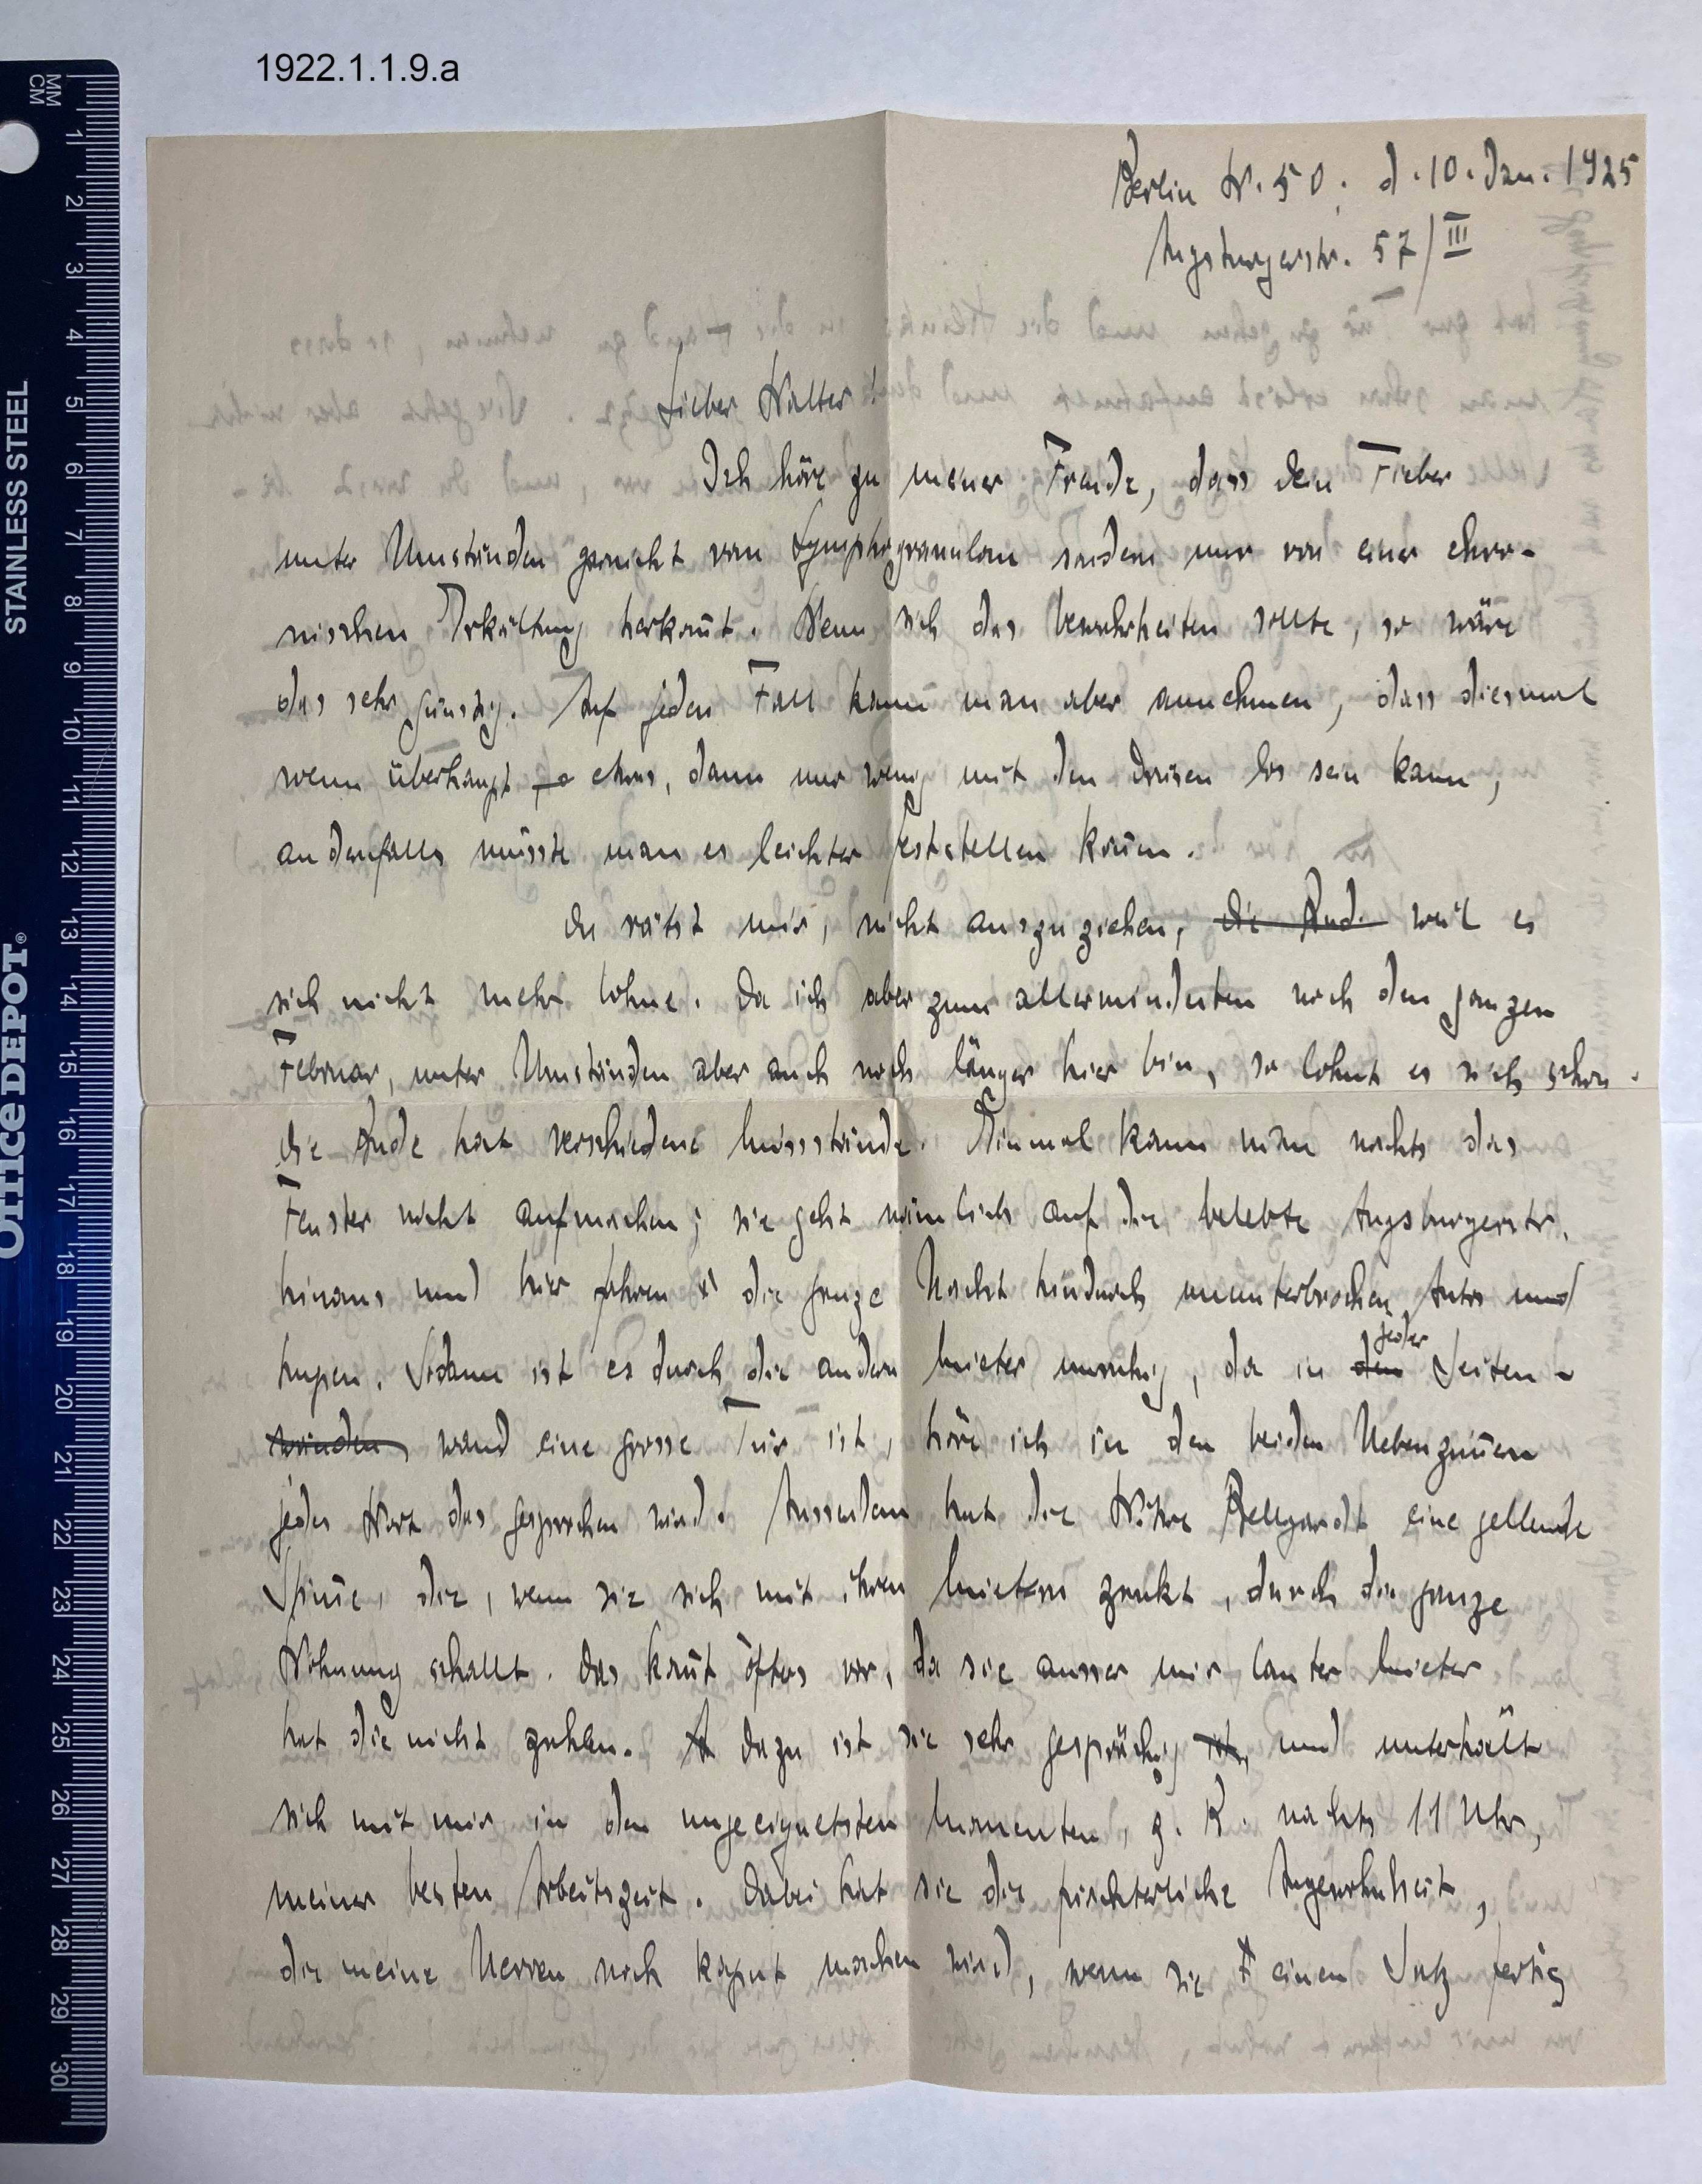 1922.1.1.9.a
MM
CM
1 2 3 4 5 6 7 8 9 10 11 12 13 14 15 16 17 18 19 20 21 22 23 24 25 26 27 28 29 30
STAINLESS STEEL
Office DEPOT®
Berlin W. 50. d. 10. Jan. 1925
Augsburgerstr. 57/III
Lieber Walter!
Ich höre zu meiner Freude, dass dein Fieber
unter Umständen garnicht vom Lymphogranulom sondern nur von einer chro-
nischen Erkältung herkom̄t. Wenn sich das bewahrheiten sollte, so wäre
das sehr günstig. Auf jeden Fall kann man aber annehmen, dass diesmal
wenn überhaupt etwas, dann nur wenig mit den Drüsen los sein kann,
andenfalls müsste man es leichter feststellen kön̄en.
Du rätst mir, nicht auszuziehen, die Bud. weil es
sich nicht mehr lohne. Da ich aber zum allermindesten noch den ganzen
Februar, unter Umständen aber auch noch länger hier bin, so lohnt es sich schon.
Die Bude hat verschiedene Missstände. Einmal kann man nachts das
Fenster nicht aufmachen; sie geht nämlich auf die belebte Augsburgerstr.
hinaus und hier fahren die ganze Nacht hindurch ununterbrochen Autos und
hupen. Sodann ist es durch die andern Mieter unruhig, da in den jeder Seiten-
wänden wand eine grosse Tür ist, höre ich in den beiden Nebenzim̄ern
jedes Wort das gesprochen wird. Ausserdem hat die Witwe Bellgardt eine gellende
Stim̄e, die, wenn sie sich mit ihren Mietern zankt, durch die ganze
Wohnung schallt. Das kom̄t öfters vor, da sie ausser mir lauter Mieter
hat die nicht zahlen. Dazu ist sie sehr gesprächig ist, und unterhält
sich mit mir in den ungeeignetsten Momenten, z. B. nachts 11 Uhr,
meiner besten Arbeitszeit. Dabei hat sie die fürchterliche Angewohnheit,
die meine Nerven noch kaput machen wird, wenn sie einen Satz fertig